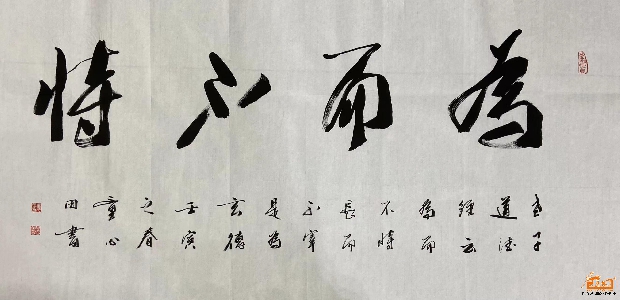 為而不恃
老子
道德
經云
為而
不恃
長而
不宰
是為
玄德
壬寅
之春
童心
田書